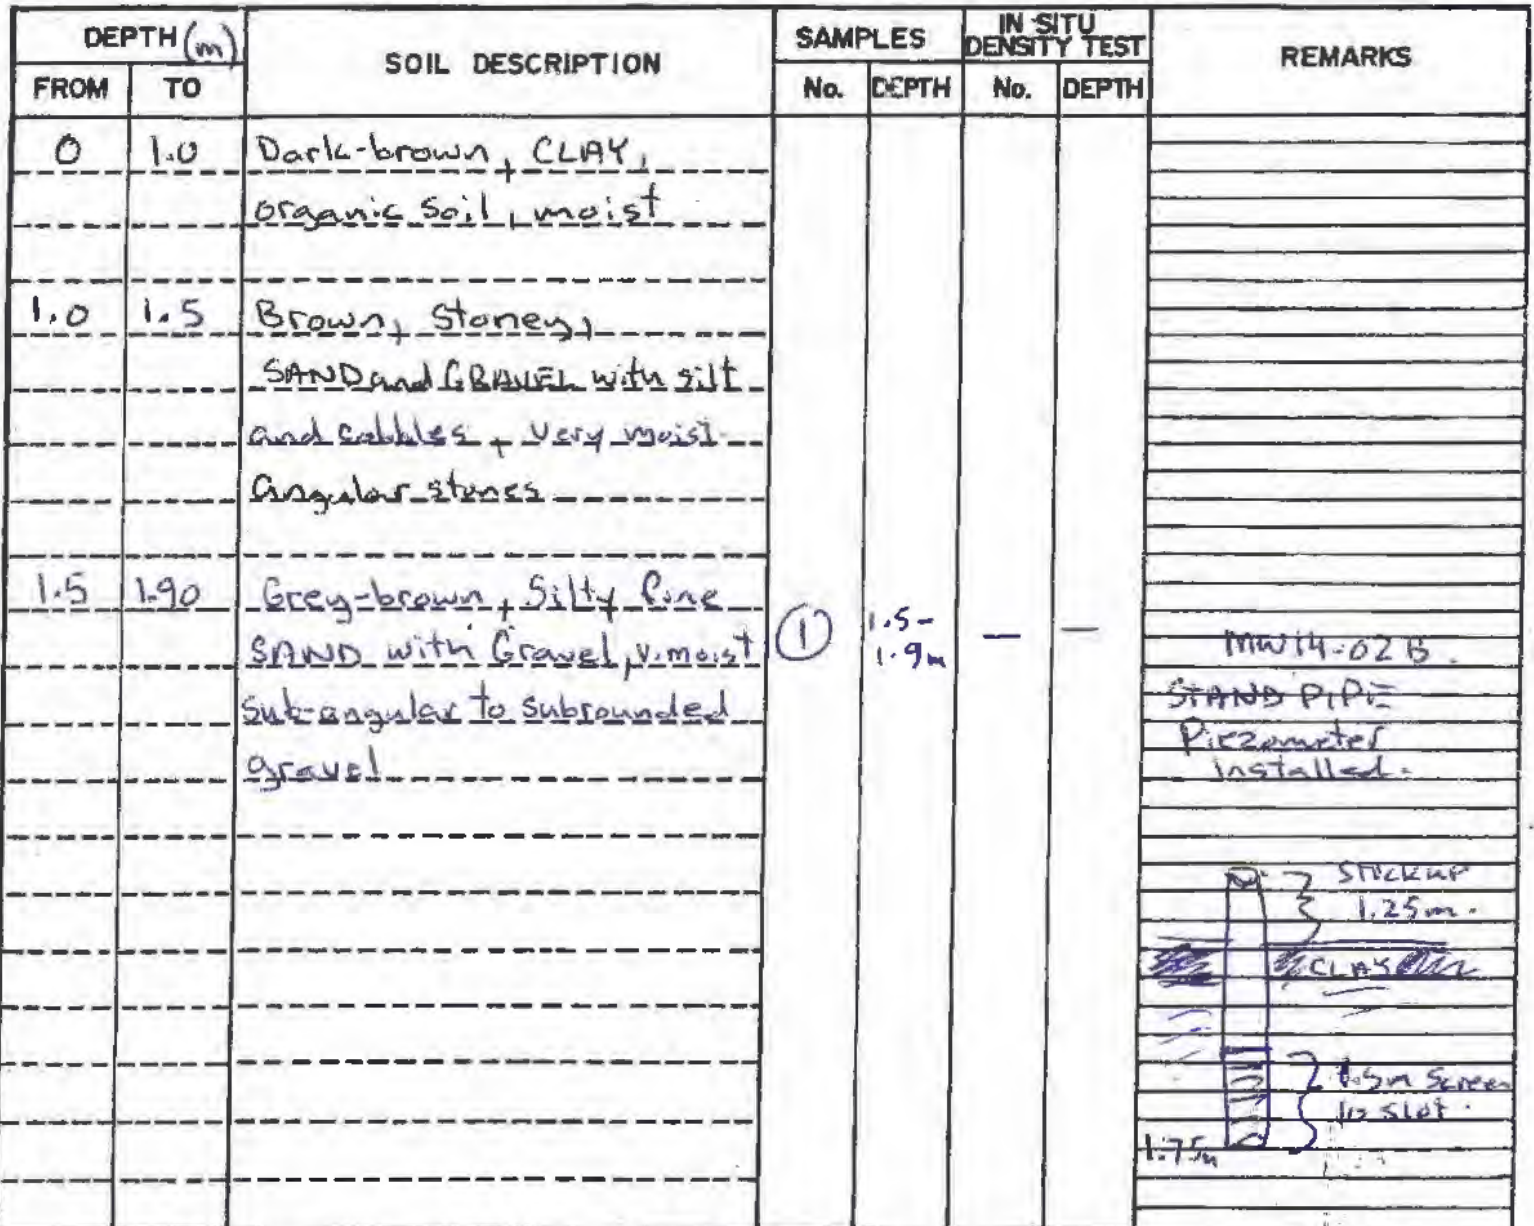 DEPTH (m)
SOIL DESCRIPTION
SAMPLES
IN SITU
DENSITY TEST
REMARKS
FROM
TO
No.
DEPTH
No.
DEPTH
0 1.0 Dark-brown, CLAY,
organic soil, moist
1.0 1.5 Brown, Stoney,
SAND and GRAVEL with silt
and cobbles, very moist
angular stones
1.5 1.90 Grey-brown, Silty fine
SAND with Gravel, v.moist
sub-angular to subrounded
gravel
1 1.5-
1.9m
— —
MW14-02B.
STAND PIPE
Piezometer
installed.
Stickup
1.25m.
CLAY
Screen
slot.
1.75m